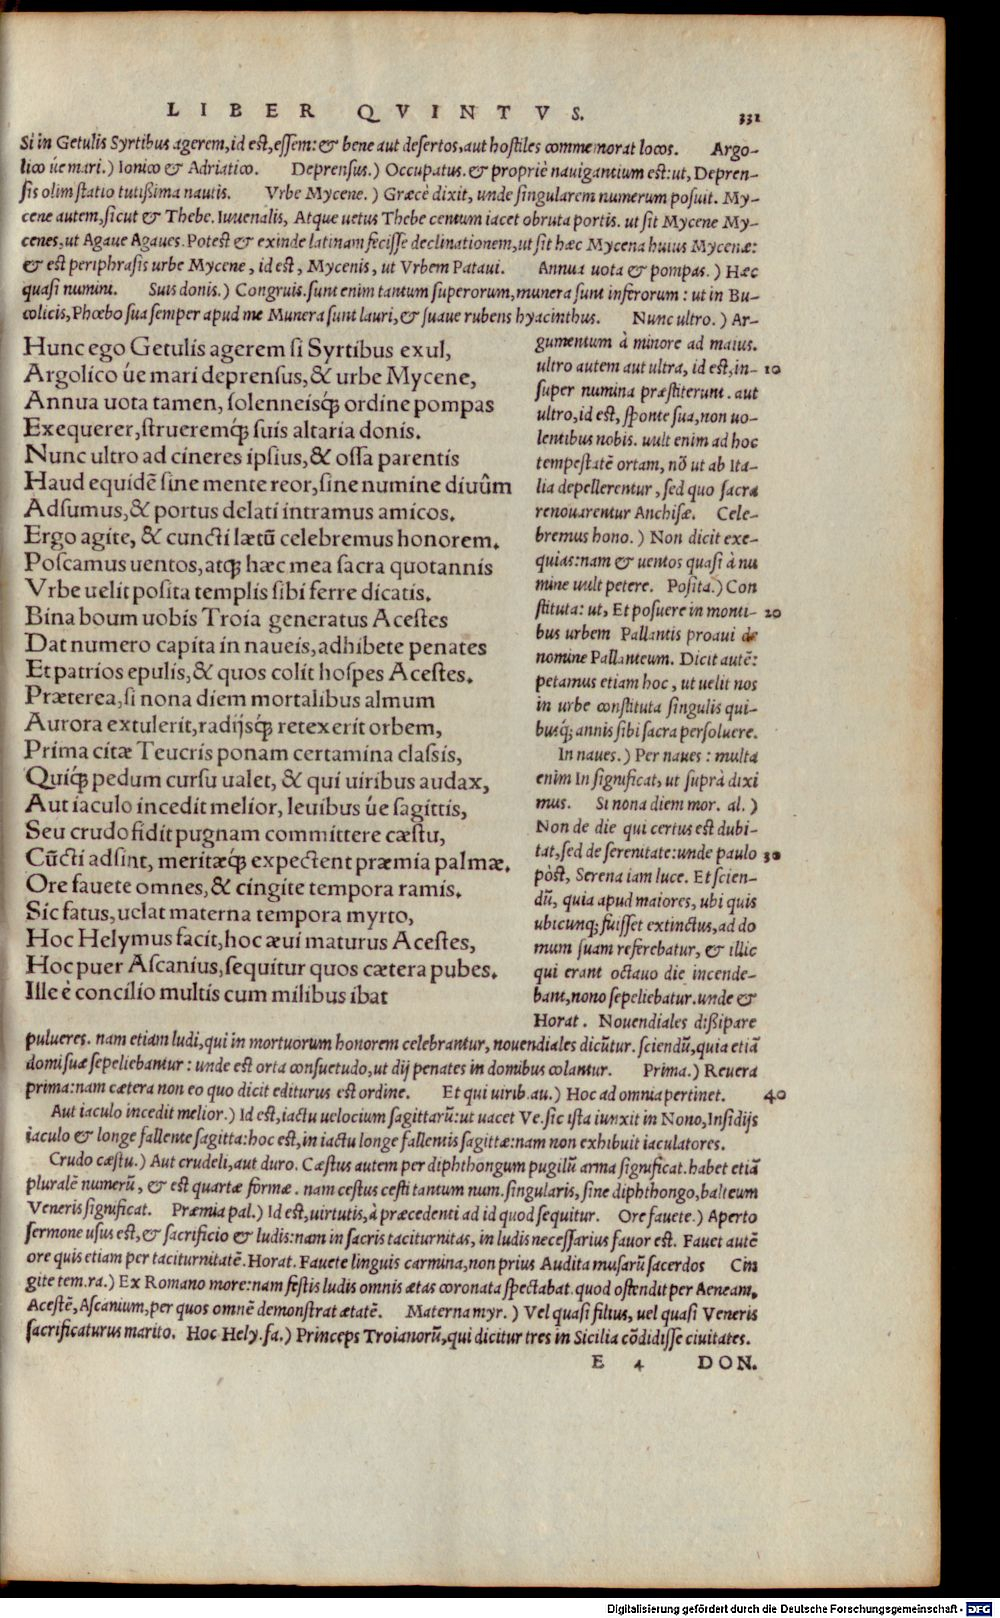 LIBER QVINTVS. 331
Si in Getulis Syrtibus agerem, id est, essem: & bene aut desertos, aut hostiles commemorat locos. Argo-
lico úe mari.) Ionico & Adriatico. Deprensus.) Occupatus. & propriè nauigantium est: ut, Depren-
sis olim statio tutißima nautis. Vrbe Mycene.) Græcè dixit, unde singularem numerum posuit. My-
cene autem, sicut & Thebe. Iuuenalis, Atque uetus Thebe centum iacet obruta portis. ut sit Mycene My-
cenes, ut Agaue Agaues. Potest & exinde latinam fecisse declinationem, ut sit hæc Mycena huius Mycenæ:
& est periphrasis urbe Mycene, id est, Mycenis, ut Vrbem Pataui. Annua uota & pompas.) Hæc
quasi numini. Suis donis.) Congruis. sunt enim tantum superorum, munera sunt inferorum: ut in Bu-
colicis, Phœbo sua semper apud me Munera sunt lauri, & suaue rubens hyacinthus. Nunc ultro.) Ar-
Hunc ego Getulis agerem si Syrtibus exul,
Argolico úe mari deprensus, & urbe Mycene,
Annua uota tamen, solenneisq́; ordine pompas
Exequerer, strueremq́; suis altaria donis.
Nunc ultro ad cineres ipsius, & ossa parentis
Haud equidē sine mente reor, sine numine diuûm
Adsumus, & portus delati intramus amicos.
Ergo agite, & cuncti lætū celebremus honorem.
Poscamus uentos, atq; hæc mea sacra quotannis
Vrbe uelit posita templis sibi ferre dicatis.
Bina boum uobis Troia generatus Acestes
Dat numero capita in naueis, adhibete penates
Et patrios epulis, & quos colit hospes Acestes.
Præterea, si nona diem mortalibus almum
Aurora extulerit, radijsq́; retexerit orbem,
Prima citæ Teucris ponam certamina classis,
Quiq́; pedum cursu ualet, & qui uiribus audax,
Aut iaculo incedit melior, leuibus úe sagittis,
Seu crudo fidit pugnam committere cæstu,
Cūcti adsint, meritæq́; expectent præmia palmæ.
Ore fauete omnes, & cingite tempora ramis.
Sic fatus, uelat materna tempora myrto,
Hoc Helymus facit, hoc æui maturus Acestes,
Hoc puer Ascanius, sequitur quos cætera pubes.
Ille è concilio multis cum milibus ibat
gumentum à minore ad maius.
ultro autem aut ultra, id est, in- 10
super numina præstiterunt. aut
ultro, id est, sponte sua, non uo-
lentibus nobis. uult enim ad hoc
tempestatē ortam, nō ut ab Ita-
lia depellerentur, sed quo sacra
renouarentur Anchisæ. Cele-
bremus hono.) Non dicit exe-
quias: nam & uentos quasi à nu
mine uult petere. Posita.) Con
stituta: ut, Et posuere in monti- 20
bus urbem Pallantis proaui de
nomine Pallanteum. Dicit autē:
petamus etiam hoc, ut uelit nos
in urbe constituta singulis qui-
busq́; annis sibi sacra persoluere.
In naues.) Per naues: multa
enim In significat, ut suprà dixi
mus. Si nona diem mor. al.)
Non de die qui certus est dubi-
tat, sed de serenitate: unde paulo 30
pòst, Serena iam luce. Et scien-
dū, quia apud maiores, ubi quis
ubicunq; fuisset extinctus, ad do
mum suam referebatur, & illic
qui erant octauo die incende-
bant, nono sepeliebatur. unde &
Horat. Nouendiales dißipare
pulueres. nam etiam ludi, qui in mortuorum honorem celebrantur, nouendiales dicūtur. sciendū, quia etiā
domi suæ sepeliebantur: unde est orta consuetudo, ut dij penates in domibus colantur. Prima.) Reuera
prima: nam cætera non eo quo dicit editurus est ordine. Et qui uirib. au.) Hoc ad omnia pertinet. 40
Aut iaculo incedit melior.) Id est, iactu uelocium sagittarū: ut uacet Ve. sic ista iunxit in Nono, Insidijs
iaculo & longe fallente sagitta: hoc est, in iactu longe fallentis sagittæ: nam non exhibuit iaculatores.
Crudo cæstu.) Aut crudeli, aut duro. Cæstus autem per diphthongum pugilū arma significat. habet etiā
pluralē numerū, & est quartæ formæ. nam cestus cesti tantum num. singularis, sine diphthongo, balteum
Veneris significat. Præmia pal.) Id est, uirtutis, à præcedenti ad id quod sequitur. Ore fauete.) Aperto
sermone usus est, & sacrificio & ludis: nam in sacris taciturnitas, in ludis necessarius fauor est. Fauet autē
ore quis etiam per taciturnitatē. Horat. Fauete linguis carmina, non prius Audita musarū sacerdos Cin
gite tem. ra.) Ex Romano more: nam festis ludis omnis ætas coronata spectabat. quod ostendit per Aeneam,
Acestē, Ascanium, per quos omnē demonstrat ætatē. Materna myr.) Vel quasi filius, uel quasi Veneris
sacrificaturus marito. Hoc Hely. fa.) Princeps Troianorū, qui dicitur tres in Sicilia cōdidisse ciuitates.
E 4 DON.
Digitalisierung gefördert durch die Deutsche Forschungsgemeinschaft - DFG